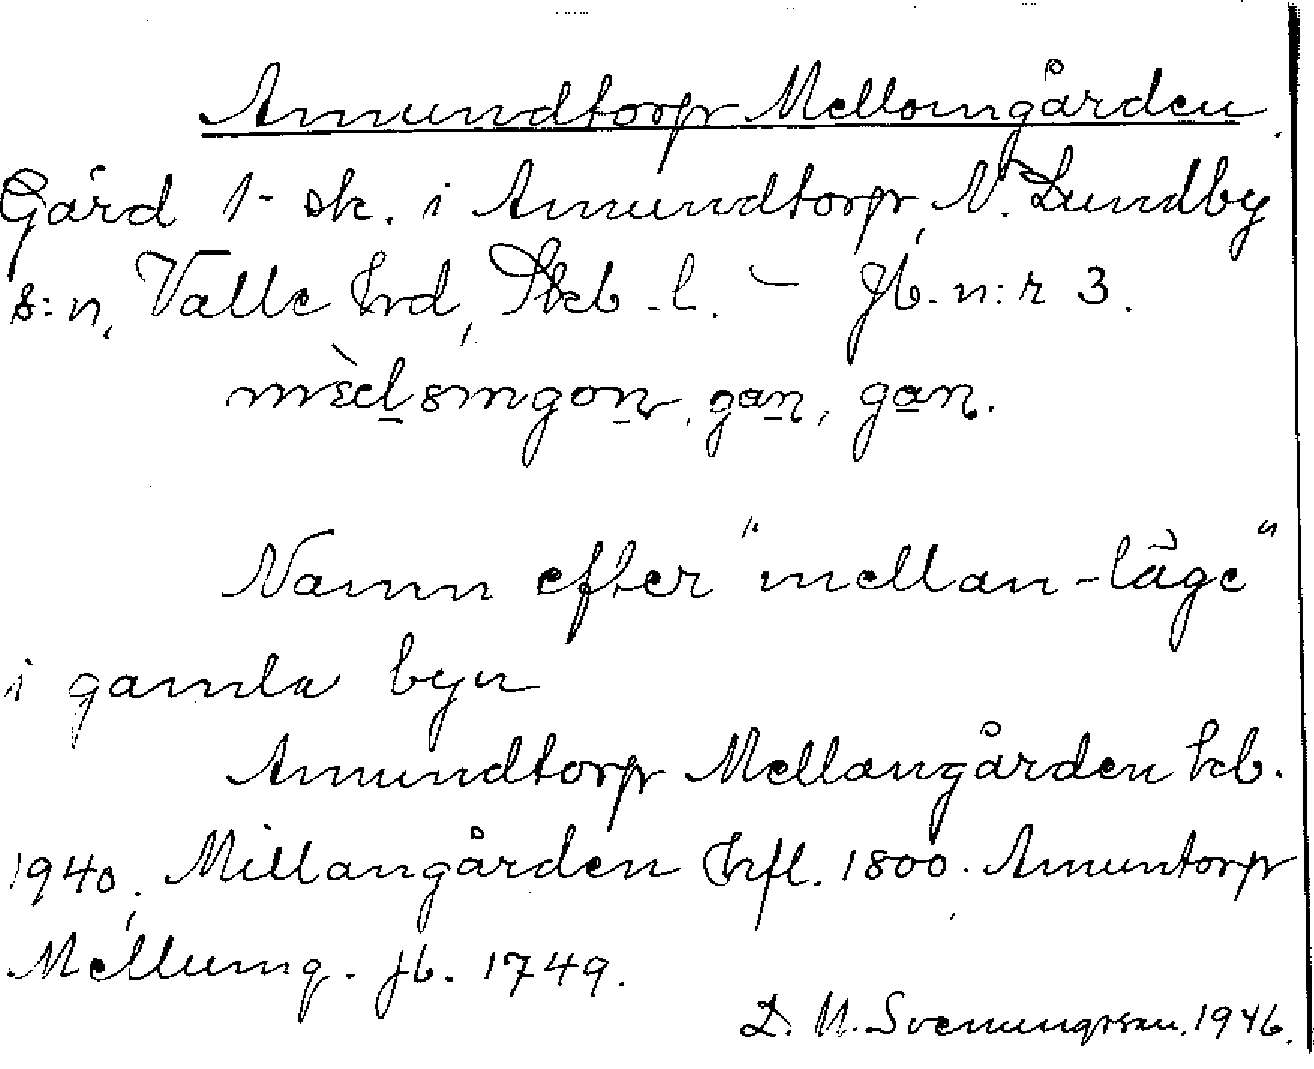 Amundtorp Mellomgården.
Gård 1 sk. i Amundtorp, N. Lundby
s:n, Valle hrd, Skab. l. – Jb. n:r 3.
gan, gan.
Namn efter "mellan-läge"
i gamla byn
Amundtorp Mellangården kb.
1940. Millangården Hfl. 1800. Amuntorp
Mellumg. jb. 1749.
D. N. Svenungsson. 1946.